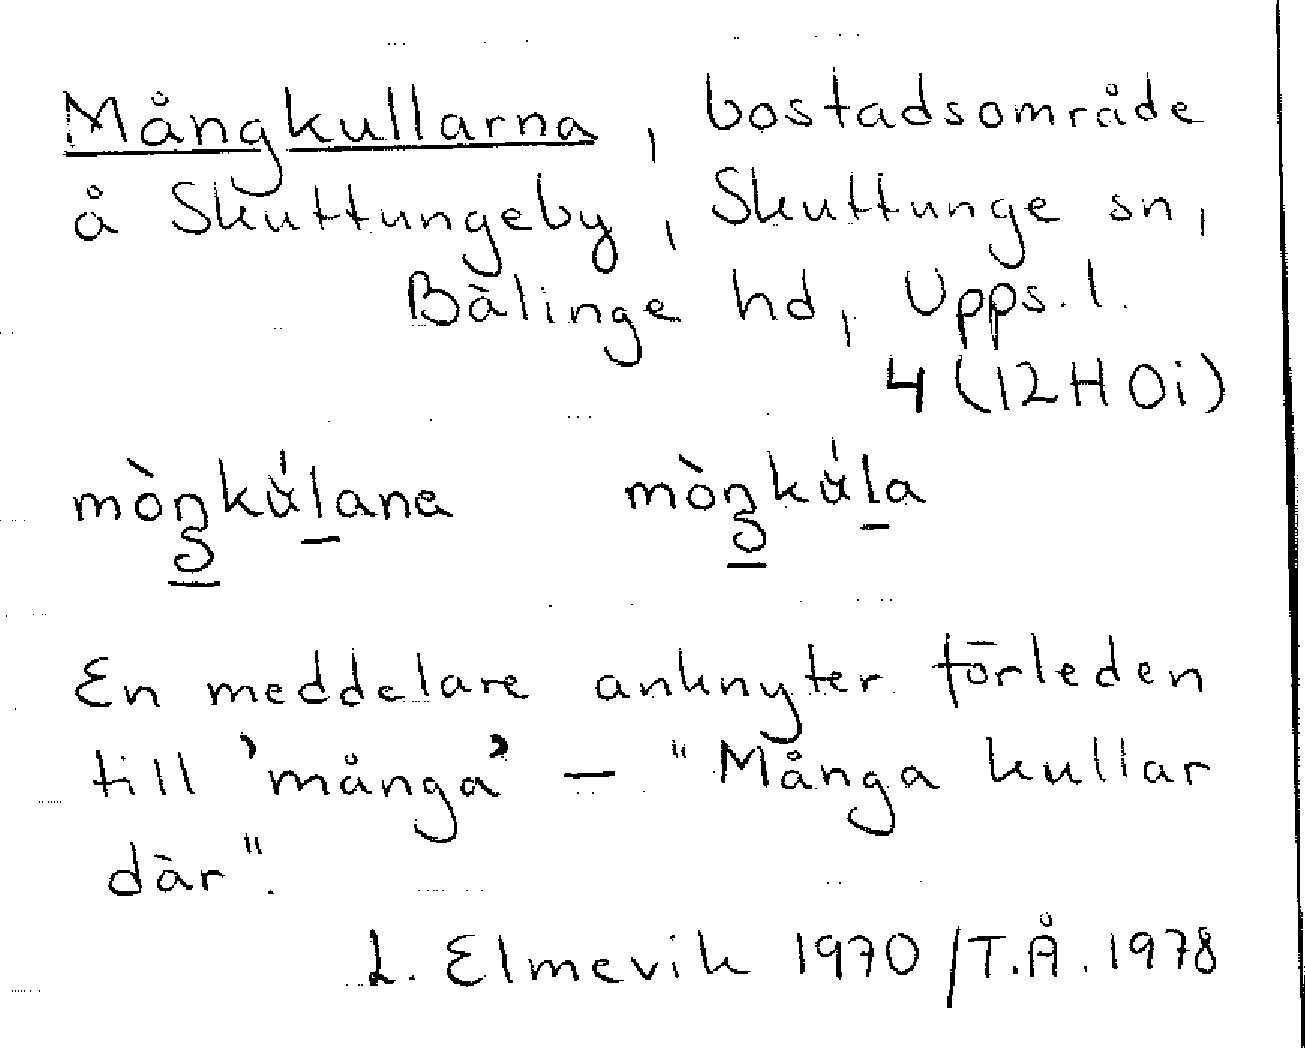 Mångkullarna, bostadsområde
å Skuttungeby, Skuttunge sn,
Bälinge hd, Upps. l.
4 (12H 0i)
En meddelare anknyter förleden
till 'många' – "Många kullar
där".
L. Elmevik 1970/T.Å. 1978